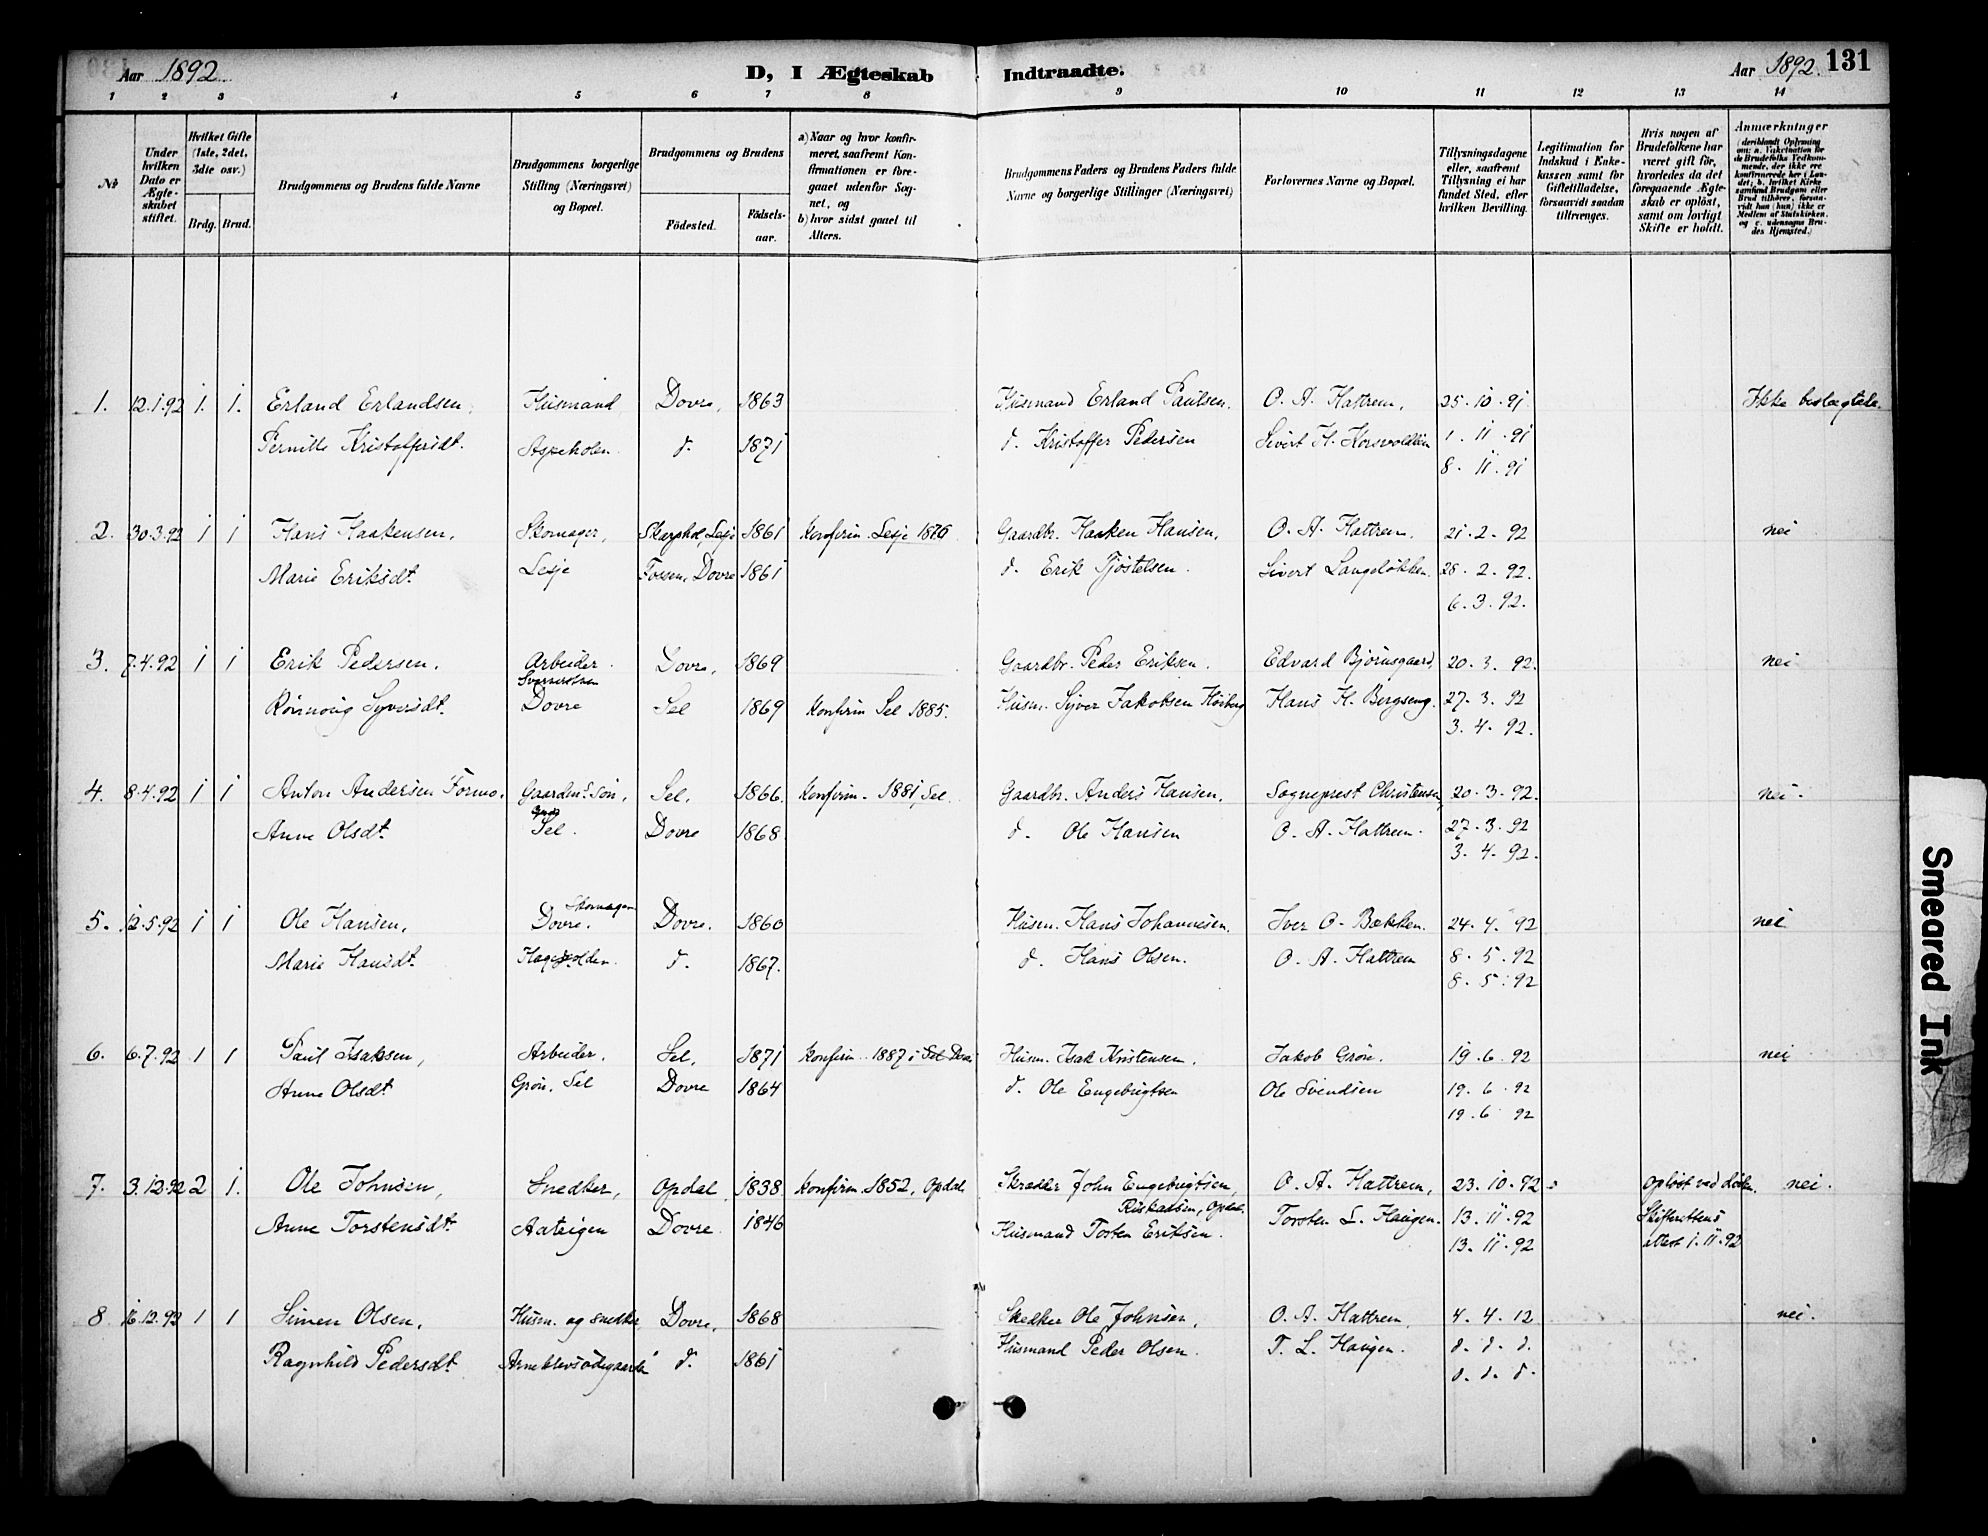 Aar 1892 D, I Ægteskab Indtraadte. Aar 1892. 131
1 2 3 4 5 6 7 8 9 10 11 12 13 14
Nr
Under hvilken Dato er Ægteskabet stiftet.
Hvilket Gifte (1ste, 2det, 3die osv.)
Brdg. Brud.
Brudgommens og Brudens fulde Navne
Brudgommens borgerlige Stilling (Næringsvei) og Bopæl.
Brudgommens og Brudens
Fødested.
Fødselsaar.
a) Naar og hvor konfirmeret, saafremt Konfirmationen er foregaaet udenfor Sognet, og
b) hvor sidst gaaet til Alters.
Brudgommens Faders og Brudens Faders fulde Navne og borgerlige Stillinger (Næringsvei)
Forlovernes Navne og Bopæl.
Tillysningsdagene eller, saafremt Tillysning ei har fundet Sted, efter hvilken Bevilling.
Legitimation for Indskud i Enkekassen samt for Giftetilladelse, forsaavidt saadan tiltrænges.
Hvis nogen af Brudefolkene har været gift før, hvorledes da det foregaaende Ægteskab er opløst, samt om lovligt Skifte er holdt.
Anmærkninger (deriblandt Oplysning om: a. Vakcination for de Brudefolks Vedkommende, der ikke ere konfirmerede her i Landet; b. hvilket Kirkesamfund Brudgom eller Brud tilhører, forsaavidt han (hun) ikke er Medlem af Statskirken, og c. udensogns Brudes Hjemsted.)
1. 12.1.92 1. 1. Erland Erlandsen, Husmand Dovre, 1863 Husmand Erland Paulsen. O. A. Hattrem, 25.10.91 Ikke beslægtede.
Pernille Kristoffersdt. Aspeholen d. 1871 d. Kristoffer Pedersen Sivert H. 1.11.91
8.11.91
2. 30.3.92 1 1 Hans Haakensen, Skomager, Lesje 1861 Konfirm. Lesje 1876 Gaardbr. Haaken Hansen, O. A. Hattrem. 21.2.92 nei
Marie Eriksdt. Lesje Fossen, Dovre 1861 d. Erik Tjøstelsen. Sivert Langeløkken. 28.2.92.
6.3.92.
3. 7.4.92 1 1 Erik Pedersen. Arbeider. Dovre, 1869 Gaardbr. Peder Eriksen. Edvard Bjørnsgaard, 20.3.92. nei
Rønnoug Syversdt. Dovre Sel 1869 Konfirm Sel 1885. Husm. Syver Jakobsen Høiberg Hans H. Bergseng. 27.3.92
3.4.92.
4. 8.4.92 1 1 Anton Andersen Formo. Gaardm.s Søn, Sel. 1866. Konfirm. 1881, Sel. Gaardbr. Anders Hansen. Sogneprest Christensen, 20.3.92. nei.
Anne Olsdt. Sel. Dovre 1868. d. Ole Hansen O. A. Hattrem. 27.3.92
3.4.92.
5. 12.5.92 1 1 Ole Hansen, Skomager Dovre. Dovre. 1860 Husm. Hans Johannesen. Iver O. Bækken. 24.4.92 nei
Marie Hansdt. d. 1867. d. Hans Olsen. O. A. Hattrem 8.5.92
8.5.92
6. 6.7.92 1 1 Paul Isaksen, Arbeider. Sel, 1871 Konfirm. 1887 i Sel Dovre Husm. Isak Kristensen. Jakob Grøn. 19.6.92 nei
Anne Olsdt Grøn. Sel Dovre 1864 d. Ole Engebrigtsen Ole Svendsen 19.6.92
19.6.92
7. 3.12.92 2 1. Ole Johnsen, Snedker, Opdal 1838. Konfirm. 1852, Opdal. John Engebrigtsen, O. A. Hattrem, 23.10.92 Opløst ved Døden. nei.
Opdal.
Anne Torstensdt. Dovre. 1846 Husmand Torsten Eriksen. Torsten L. Haugen. 13.11.92 Skifterettens
13.11.92 attest 1.11.92
8 16.12.92 1 1 Simen Olsen, Husm. og snedker, Dovre, 1868 Ole Johnsen, O. A. Hattrem, 4.4.12 nei.
Ragnhild Pedersdt d. 1861 Husmand Peder Olsen. T. L. Haugen. d. d. d.
d. d. d.
Smeared Ink